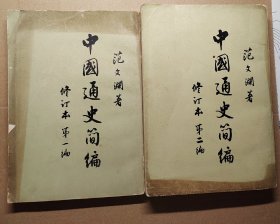 范文澜著
中國通史简编
修订本第一编
范文澜著
中國通史简编
修订本第二编